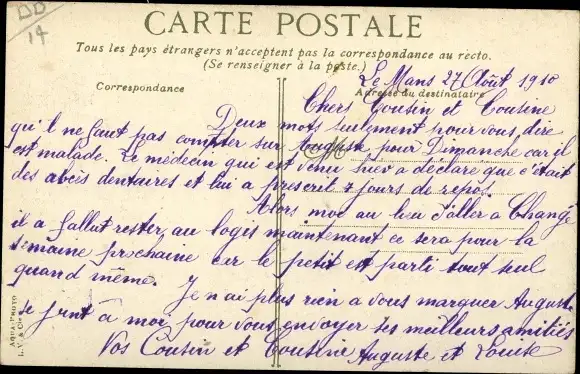 DD
14
CARTE POSTALE
Tous les pays étrangers n'acceptent pas la correspondance au recto.
(Se renseigner à la poste.)
Correspondance
Adresse du destinataire
Le Mans 27 Août 1910
Chers Cousin et Cousine
Deux mots seulement pour vous dire
qu'il ne faut pas compter sur Auguste pour Dimanche car il
est malade. Le médecin qui est venu hier a déclaré que c'était
des abcès dentaires et lui a prescrit 4 jours de repos.
Alors moi au lieu d'aller à Changé
il a fallut rester au logis maintenant ce sera pour la
semaine prochaine car le petit est parti tout seul
quand même. Je n'ai plus rien a vous marquer Auguste
se joint à moi pour vous envoyer ses meilleurs amitiés
Vos Cousin et Cousine Auguste et Louise
AQUA-PHOTO
L.V. & Cie